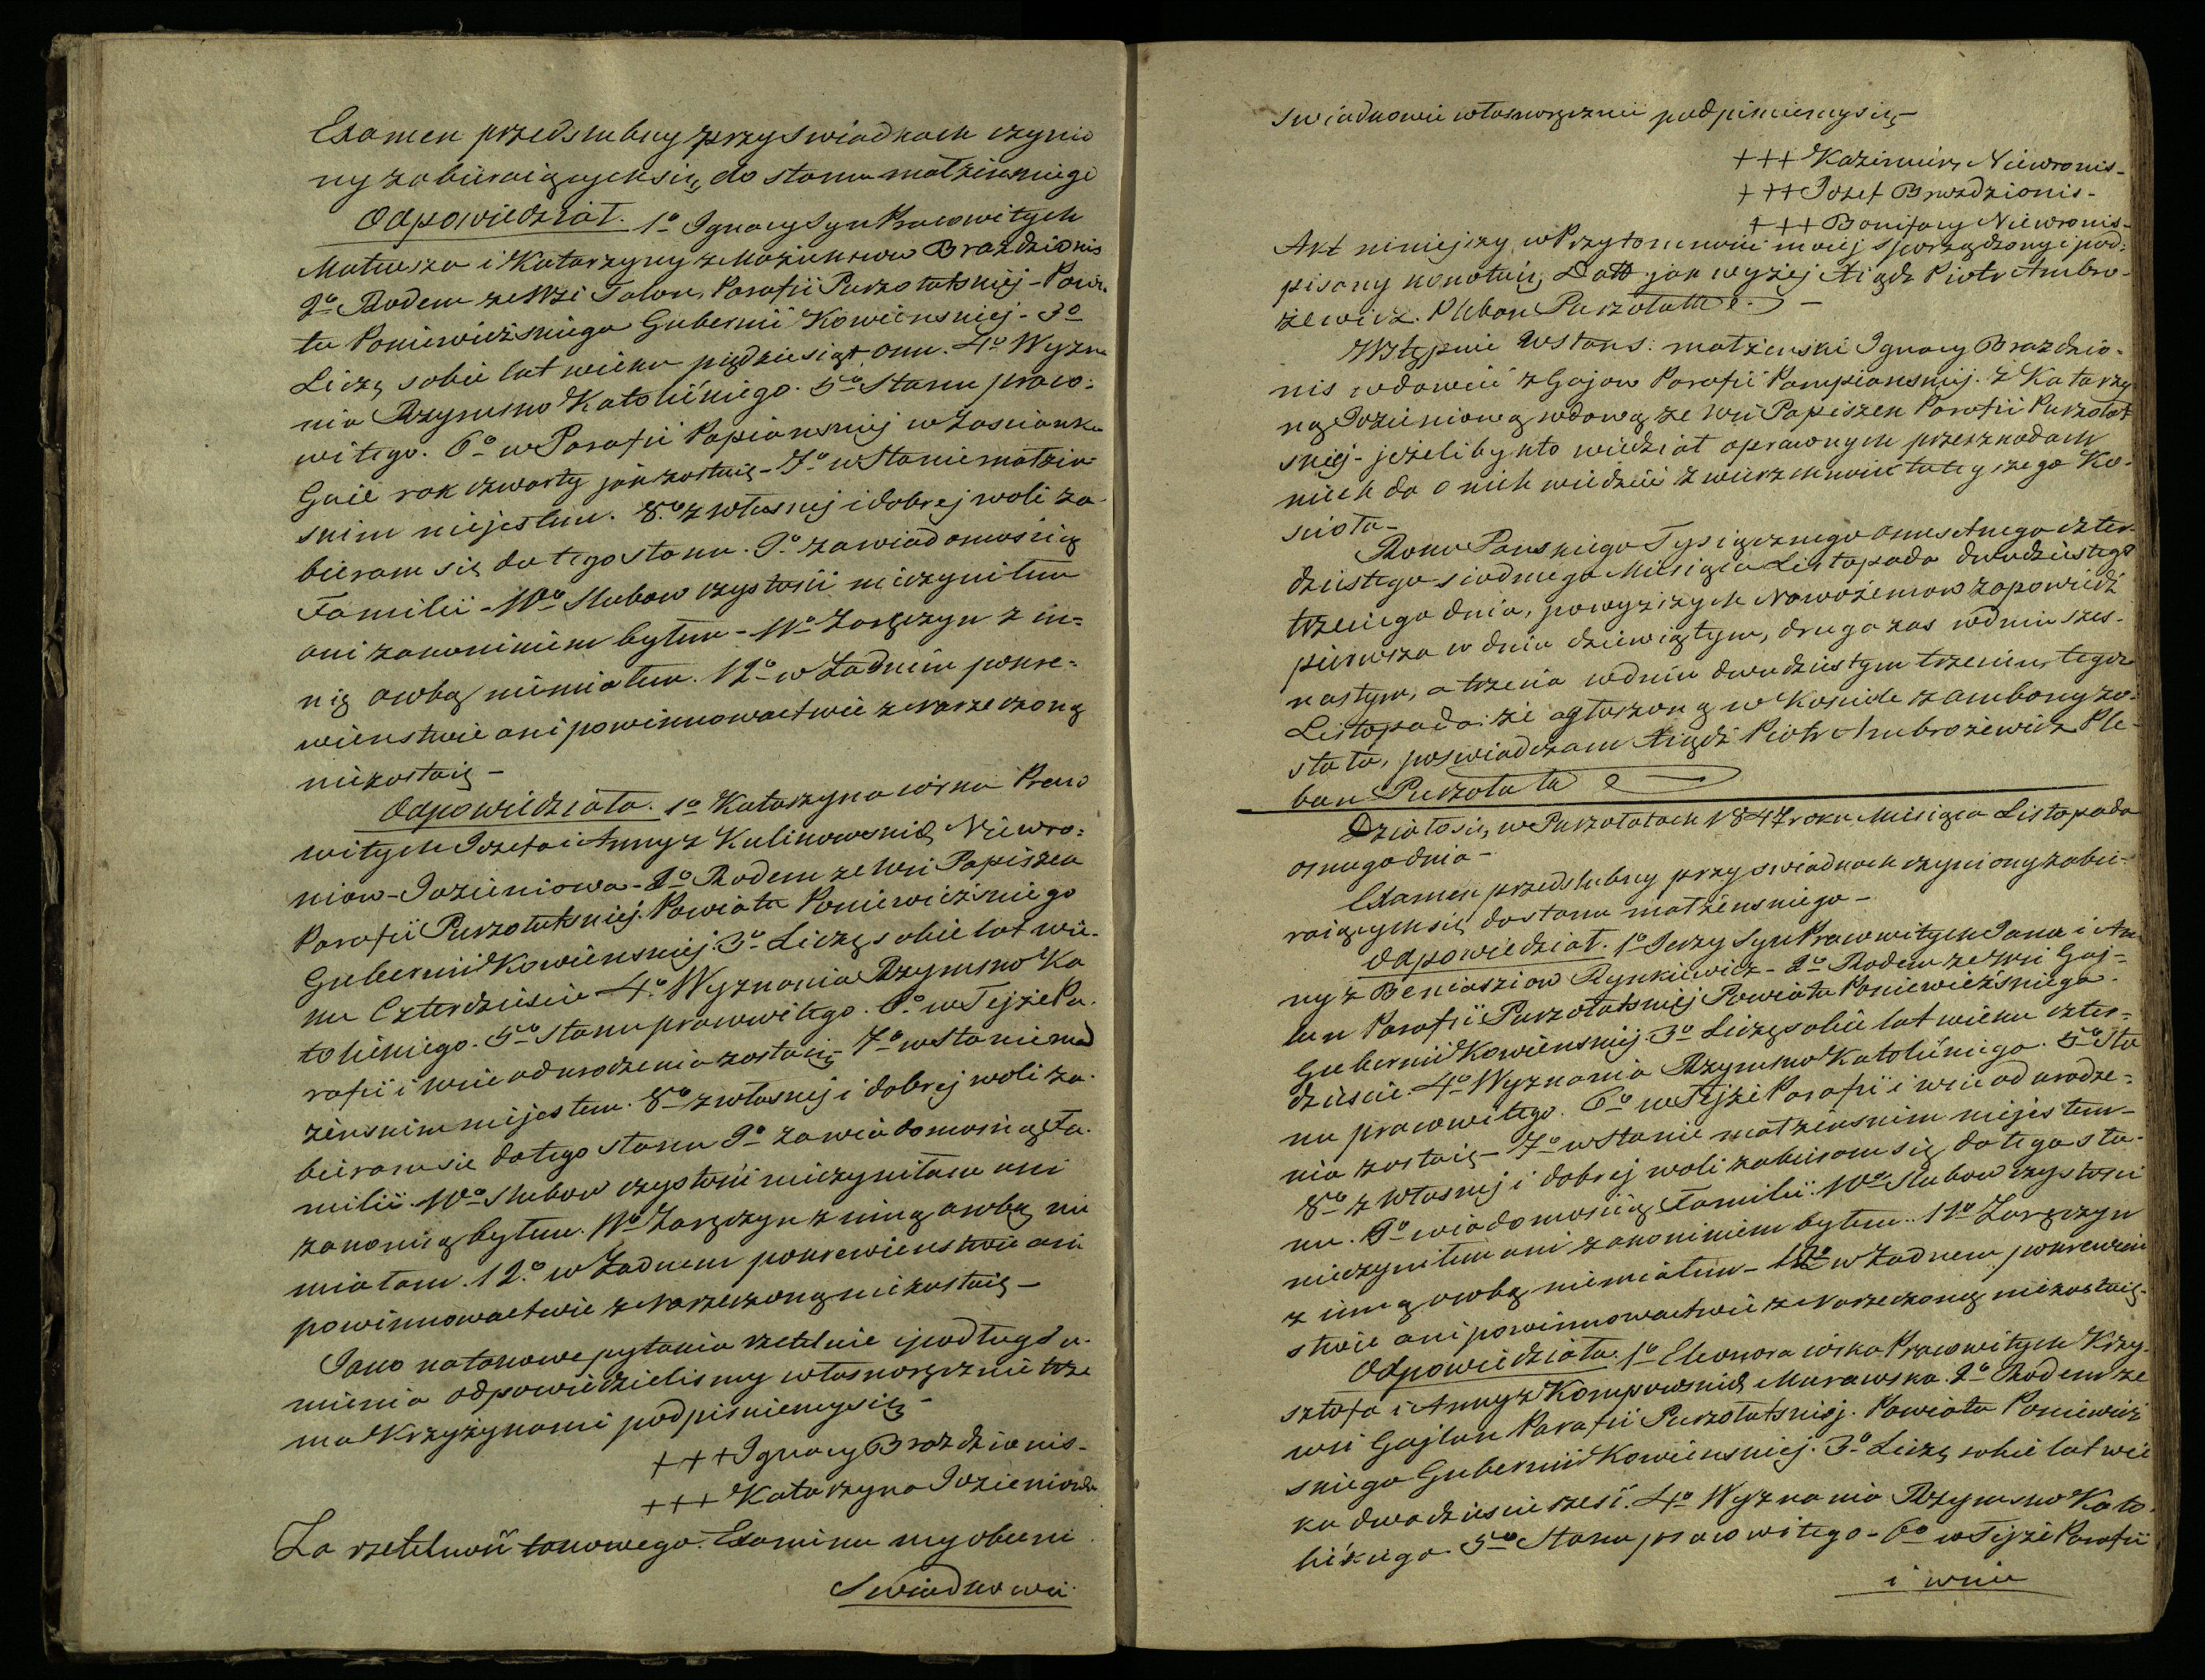 Examen przedslubny przy swiadkach czynio
ny zabieraiących się do stanu małżenskiego
Odpowiedział. 1o Ignacy Syn Prawowitych
Mateusza i Katarzyny z Brazdzionis
2o Rodem ze Wsi Talon, Parafii Puszołatskiej - Powia
tu Poniewiezskiego Gubernii Kowienskiej - 3o
Liczę sobie lat wieku pięcdziesiąt 4o Wyzna
nia Rzymsko Katolickiego. 5o Stanu prawo-
witego. 6o w Parafii Papianskiej w Zascianku
Gaie rok czwarty jak zostaię - 7o w Stanie małżen
skim niejestem. 8o z Własnej i dobrej woli za
bieram się do tego stanu. 9o za wiadomością
Familii - 10o Slubow czystosci nieczyniłem
ani zakonnikiem byłem - 11o Zaręczyn z in=
ną osobą niemiałem. 12o w Żadnem pokre=
wienstwie ani powinnowactwie z Narzeczoną
niezostaię -
Odpowiedziała. 1o Katarzyna corka Prawo
witych Jozefa i Anny z Kulikowskich Niewro=
niow - Jozieniowa - 2o Rodem ze Wsi Papiszen
Parafii Puszołatskiej. Powiatu Poniewiezskiego
Gubernii Kowienskiej. 3o Liczę sobie lat wie-
ku Czterdziescie 4o Wyznania Rzymsko Ka
tolickiego. 5o Stanu prawowitego. 6o w Tejże Pa-
rafii i wsi od urodzenia zostaię 7o w Stanie mał
żenskim niejestem. 8o z własnej i dobrej woli za-
bieram sie do tego stanu 9o za wiadomoscią Fa-
milii. 10o Slubow czystosci nieczyniłam ani
zakonnicą byłem. 11o Zaręczyn z inną osobą nie
miałam. 12o w Żadnem pokrewienstwie ani
powinnowactwie z Narzeczonym niezostaię -
Jako na takowe pytania rzetelnie i podług su-
mienia odpowiedzielismy własnoręcznie trze
ma Krzyżykami podpisuiemy się -
+++ Ignacy Brazdzionis -
+++ Katarzyna Jozieniowa
Za rzetelnosć takowego Examinu my obecni
Swiadkowie
swiadkowie własnoręcznie podpisuiemy się -
+++ Kazimierz Niewronis -
+++ Jozef Brazdzionis -
+++ Bonifacy Niewronis -
Akt niniejszy w Przytomnosci moiej sporządzony i pod=
pisany konotuię Datt jak wyżej Xiądz Piotr Ambro-
żewicz. Pleban Puszołatt
Wstępuie w Stans: małżenski Ignacy Brazdzio-
nis wdowiec z Gajow Parafii Pompianskiej. z Katarzy
ną Jozieniową wdową ze wsi Papiszen Parafii Puszołat
skiej - jeżeli by kto wiedział o prawnych przeszkodach
niech da o nich wiedzieć zwierzchnosci tuteyszego Ko-
scioła -
Roku Panskiego Tysiącznego Osmsetnego czter-
dziestego siodmego Miesiąca Listopada dwudziestego
trzeciego dnia, powyższych Nowożencow zapowiedź
pierwsza w dniu dziewiątym, druga zas w dniu szes-
nastym, a trzecia w dniu dwudziestym trzecim tegoż
Listopada: że ogłoszoną w Kosciele z ambony zo-
stała, poswiadczam Xiądz Piotr Ambrożewicz Ple-
ban Puszołata
Działo się w Puszołatach 1847 roku Miesiąca Listopada
osmego dnia -
Examen przedslubny przy swiadkach czyniony zabie-
raiących się do stanu małżenskiego -
Odpowiedział. 1o Jerzy Syn Prawowitych Jana i An
ny z Beniasziow Rynkiewicz - 2o Rodem ze Wsi Gaj=
lun Parafii Puszołatskiej Powiatu Poniewiezskiego.
Gubernii Kowienskiej. 3o Liczę sobie lat wieku czter=
dziescie. 4o Wyznania Rzymsko Katolickiego. 5o Sta
nu prawowitego. 6o w Tejże Parafii i wsi od urodze=
nia zostaię - 7o w Stanie małżenskim niejestem -
8o z Własnej i dobrej woli zabieram się do tego sta-
nu. 9o wiadomoscią Familii. 10o Slubow czystosci
nieczyniłem ani zakonnikiem byłem.. 11o Zaręczyn
z inną osobą niemiałem - 12o w Żadnem pokrewien
stwie ani powinnowactwie z Narzeczoną niezostaię -
Odpowiedziała. 1o Eleonora corka Prawowitych Krzy-
sztofa i Anny z Kompowskich Murawska. 2o Rodem ze
wsi Gajlun Parafii Puszołatskiej. Powiatu Poniewież
skiego Gubernii Kowienskiej. 3o Liczę sobie lat wie
ku dwadziescie szesć. 4o Wyznania Rzymsko Kato-
lickiego. 5o Stanu prawowitego - 6o w Tejże Parafii
i wsie